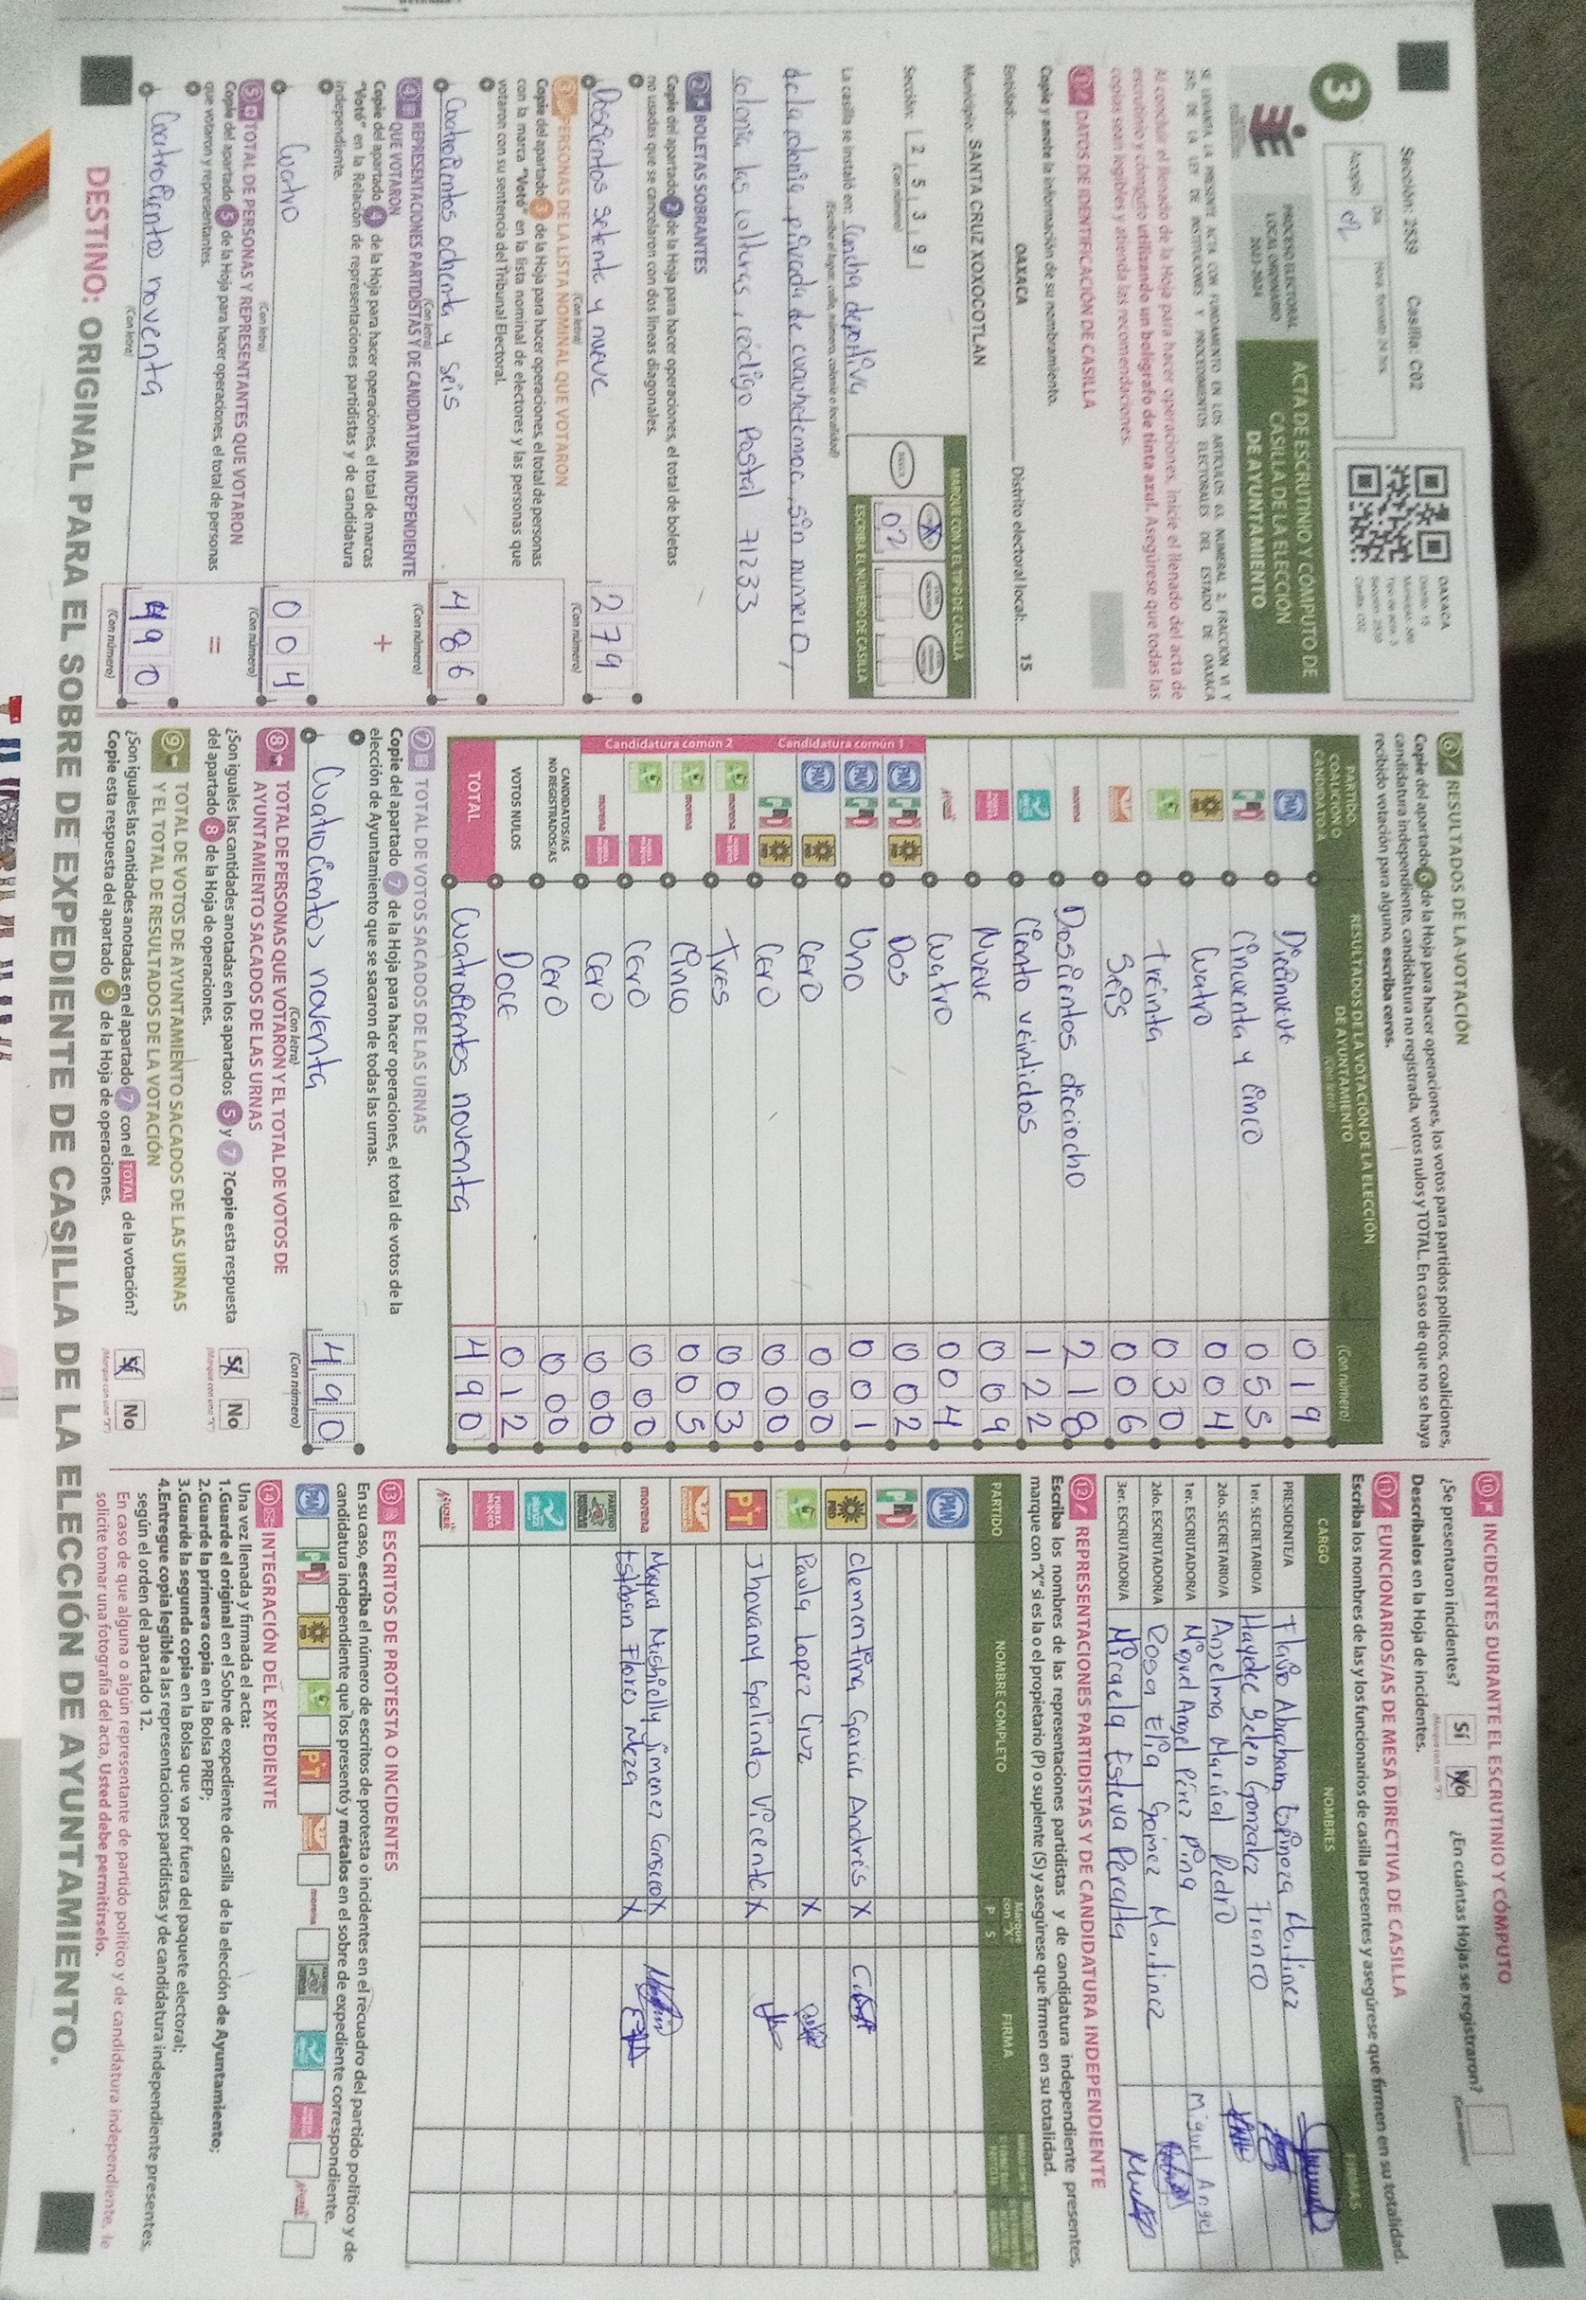 Sección: 2539 Casilla: C02
3
Acopio
Día
Hora, formato 24 hrs.
OAXACA
Distrito: 15
Tipo de acta: 3
Sección: 2539
Casilla: C02
PROCESO ELECTORAL
LOCAL ORDINARIO
2023-2024
ACTA DE ESCRUTINIO Y CÓMPUTO DE
CASILLA DE LA ELECCIÓN
DE AYUNTAMIENTO
SE LEVANTA LA PRESENTE ACTA CON FUNDAMENTO EN LOS ARTÍCULOS 63, NUMERAL 2, FRACCIÓN VI Y
DE LA LEY DE INSTITUCIONES Y PROCEDIMIENTOS ELECTORALES DEL ESTADO DE OAXACA
Al concluir el llenado de la Hoja para hacer operaciones, inicie el llenado del acta de
escrutinio y cómputo utilizando un bolígrafo de tinta azul. Asegúrese que todas las
copias sean legibles y atienda las recomendaciones.
1 DATOS DE IDENTIFICACIÓN DE CASILLA
Copie y anote la información de su nombramiento.
Entidad: OAXACA Distrito electoral local: 15
Municipio: SANTA CRUZ XOXOCOTLAN
Sección: 2 5 3 9
(Con número)
MARQUE CON X EL TIPO DE CASILLA
X
02
ESCRIBA EL NÚMERO DE CASILLA
La casilla se instaló en: Cancha deportiva
(Escriba el lugar, calle, número, colonia o localidad)
de la colonia, privada de cuauhetemoc, sin numero,
colonia las culturas, código Postal 71233
2 BOLETAS SOBRANTES
Copie del apartado 2 de la Hoja para hacer operaciones, el total de boletas
no usadas que se cancelaron con dos líneas diagonales.
Doscientos setenta y nueve 279
(Con letra) (Con número)
3 PERSONAS DE LA LISTA NOMINAL QUE VOTARON
Copie del apartado 3 de la Hoja para hacer operaciones, el total de personas
con la marca "Votó" en la lista nominal de electores y las personas que
votaron con su sentencia del Tribunal Electoral.
Cuatrocientos ochenta y seis 486
(Con letra) (Con número)
4 REPRESENTACIONES PARTIDISTAS Y DE CANDIDATURA INDEPENDIENTE
QUE VOTARON
Copie del apartado 4 de la Hoja para hacer operaciones, el total de marcas
"Votó" en la Relación de representaciones partidistas y de candidatura
independiente.
+
Cuatro 004
(Con letra) (Con número)
5 TOTAL DE PERSONAS Y REPRESENTANTES QUE VOTARON
Copie del apartado 5 de la Hoja para hacer operaciones, el total de personas
que votaron y representantes.
=
Cuatrociento noventa 490
(Con letra) (Con número)
6 RESULTADOS DE LA VOTACIÓN
Copie del apartado 6 de la Hoja para hacer operaciones, los votos para partidos políticos, coaliciones,
candidatura independiente, candidatura no registrada, votos nulos y TOTAL. En caso de que no se haya
recibido votación para alguno, escriba ceros.
PARTIDO, COALICIÓN O CANDIDATO/A
RESULTADOS DE LA VOTACIÓN DE LA ELECCIÓN
DE AYUNTAMIENTO
(Con letra) (Con número)
PAN Diecinueve 019
PRI Cincuenta y cinco 055
PRD Cuatro 004
treinta 030
Seis 006
morena Doscientos dieciocho 218
Ciento veintidos 122
Nueve 009
MUJER Cuatro 004
Candidatura común 1
PAN PRI PRD Dos 002
PAN PRI Uno 001
PAN PRD Cero 000
PRI PRD Cero 000
Candidatura común 2
morena Tres 003
morena Cinco 005
Cero 000
morena Cero 000
CANDIDATOS/AS
NO REGISTRADOS/AS Cero 000
VOTOS NULOS Doce 012
TOTAL Cuatrocientos noventa 490
7 TOTAL DE VOTOS SACADOS DE LAS URNAS
Copie del apartado 7 de la Hoja para hacer operaciones, el total de votos de la
elección de Ayuntamiento que se sacaron de todas las urnas.
Cuatrocientos noventa 490
(Con letra) (Con número)
8 TOTAL DE PERSONAS QUE VOTARON Y EL TOTAL DE VOTOS DE
AYUNTAMIENTO SACADOS DE LAS URNAS
¿Son iguales las cantidades anotadas en los apartados 5 y 7? Copie esta respuesta
del apartado 8 de la Hoja de operaciones.
Sí No
(Marque con una "X")
9 TOTAL DE VOTOS DE AYUNTAMIENTO SACADOS DE LAS URNAS
Y EL TOTAL DE RESULTADOS DE LA VOTACIÓN
¿Son iguales las cantidades anotadas en el apartado 7 con el TOTAL de la votación?
Copie esta respuesta del apartado 9 de la Hoja de operaciones.
Sí No
(Marque con una "X")
10 INCIDENTES DURANTE EL ESCRUTINIO Y CÓMPUTO
¿Se presentaron incidentes? Sí No ¿En cuántas Hojas se registraron?
(Marque con una "X") (Con número)
Descríbalos en la Hoja de incidentes.
11 FUNCIONARIOS/AS DE MESA DIRECTIVA DE CASILLA
Escriba los nombres de las y los funcionarios de casilla presentes y asegúrese que firmen en su totalidad.
CARGO NOMBRES FIRMAS
PRESIDENTE/A Flavio Abraham Espinoza Martinez
1er. SECRETARIO/A Haydee Belen Gonzalez Franco
2do. SECRETARIO/A Anselma Marcial Pedro
1er. ESCRUTADOR/A Miguel Angel Pérez Pina Miguel Angel
2do. ESCRUTADOR/A Rosa Elia Gomez Martinez
3er. ESCRUTADOR/A Micaela Esteva Peralta
12 REPRESENTACIONES PARTIDISTAS Y DE CANDIDATURA INDEPENDIENTE
Escriba los nombres de las representaciones partidistas y de candidatura independiente presentes,
marque con "X" si es la o el propietario (P) o suplente (S) y asegúrese que firmen en su totalidad.
PARTIDO NOMBRE COMPLETO Marque con "X" P S FIRMA
PAN
PRI
PRD Clementina Garcia Andrés X
Paula Lopez Cruz X
PT Jhovany Galindo Vicente X
morena Mayra Mishielly Jimenez Carsico X
Esteban Flores Meza X
MUJER
13 ESCRITOS DE PROTESTA O INCIDENTES
En su caso, escriba el número de escritos de protesta o incidentes en el recuadro del partido político y de
candidatura independiente que los presentó y métalos en el sobre de expediente correspondiente.
PAN PRI PRD PT morena MUJER
14 INTEGRACIÓN DEL EXPEDIENTE
Una vez llenada y firmada el acta:
1.Guarde el original en el Sobre de expediente de casilla de la elección de Ayuntamiento;
2.Guarde la primera copia en la Bolsa PREP;
3.Guarde la segunda copia en la Bolsa que va por fuera del paquete electoral;
4.Entregue copia legible a las representaciones partidistas y de candidatura independiente presentes,
según el orden del apartado 12.
En caso de que alguna o algún representante de partido político y de candidatura independiente, le
solicite tomar una fotografía del acta, Usted debe permitírselo.
DESTINO: ORIGINAL PARA EL SOBRE DE EXPEDIENTE DE CASILLA DE LA ELECCIÓN DE AYUNTAMIENTO.